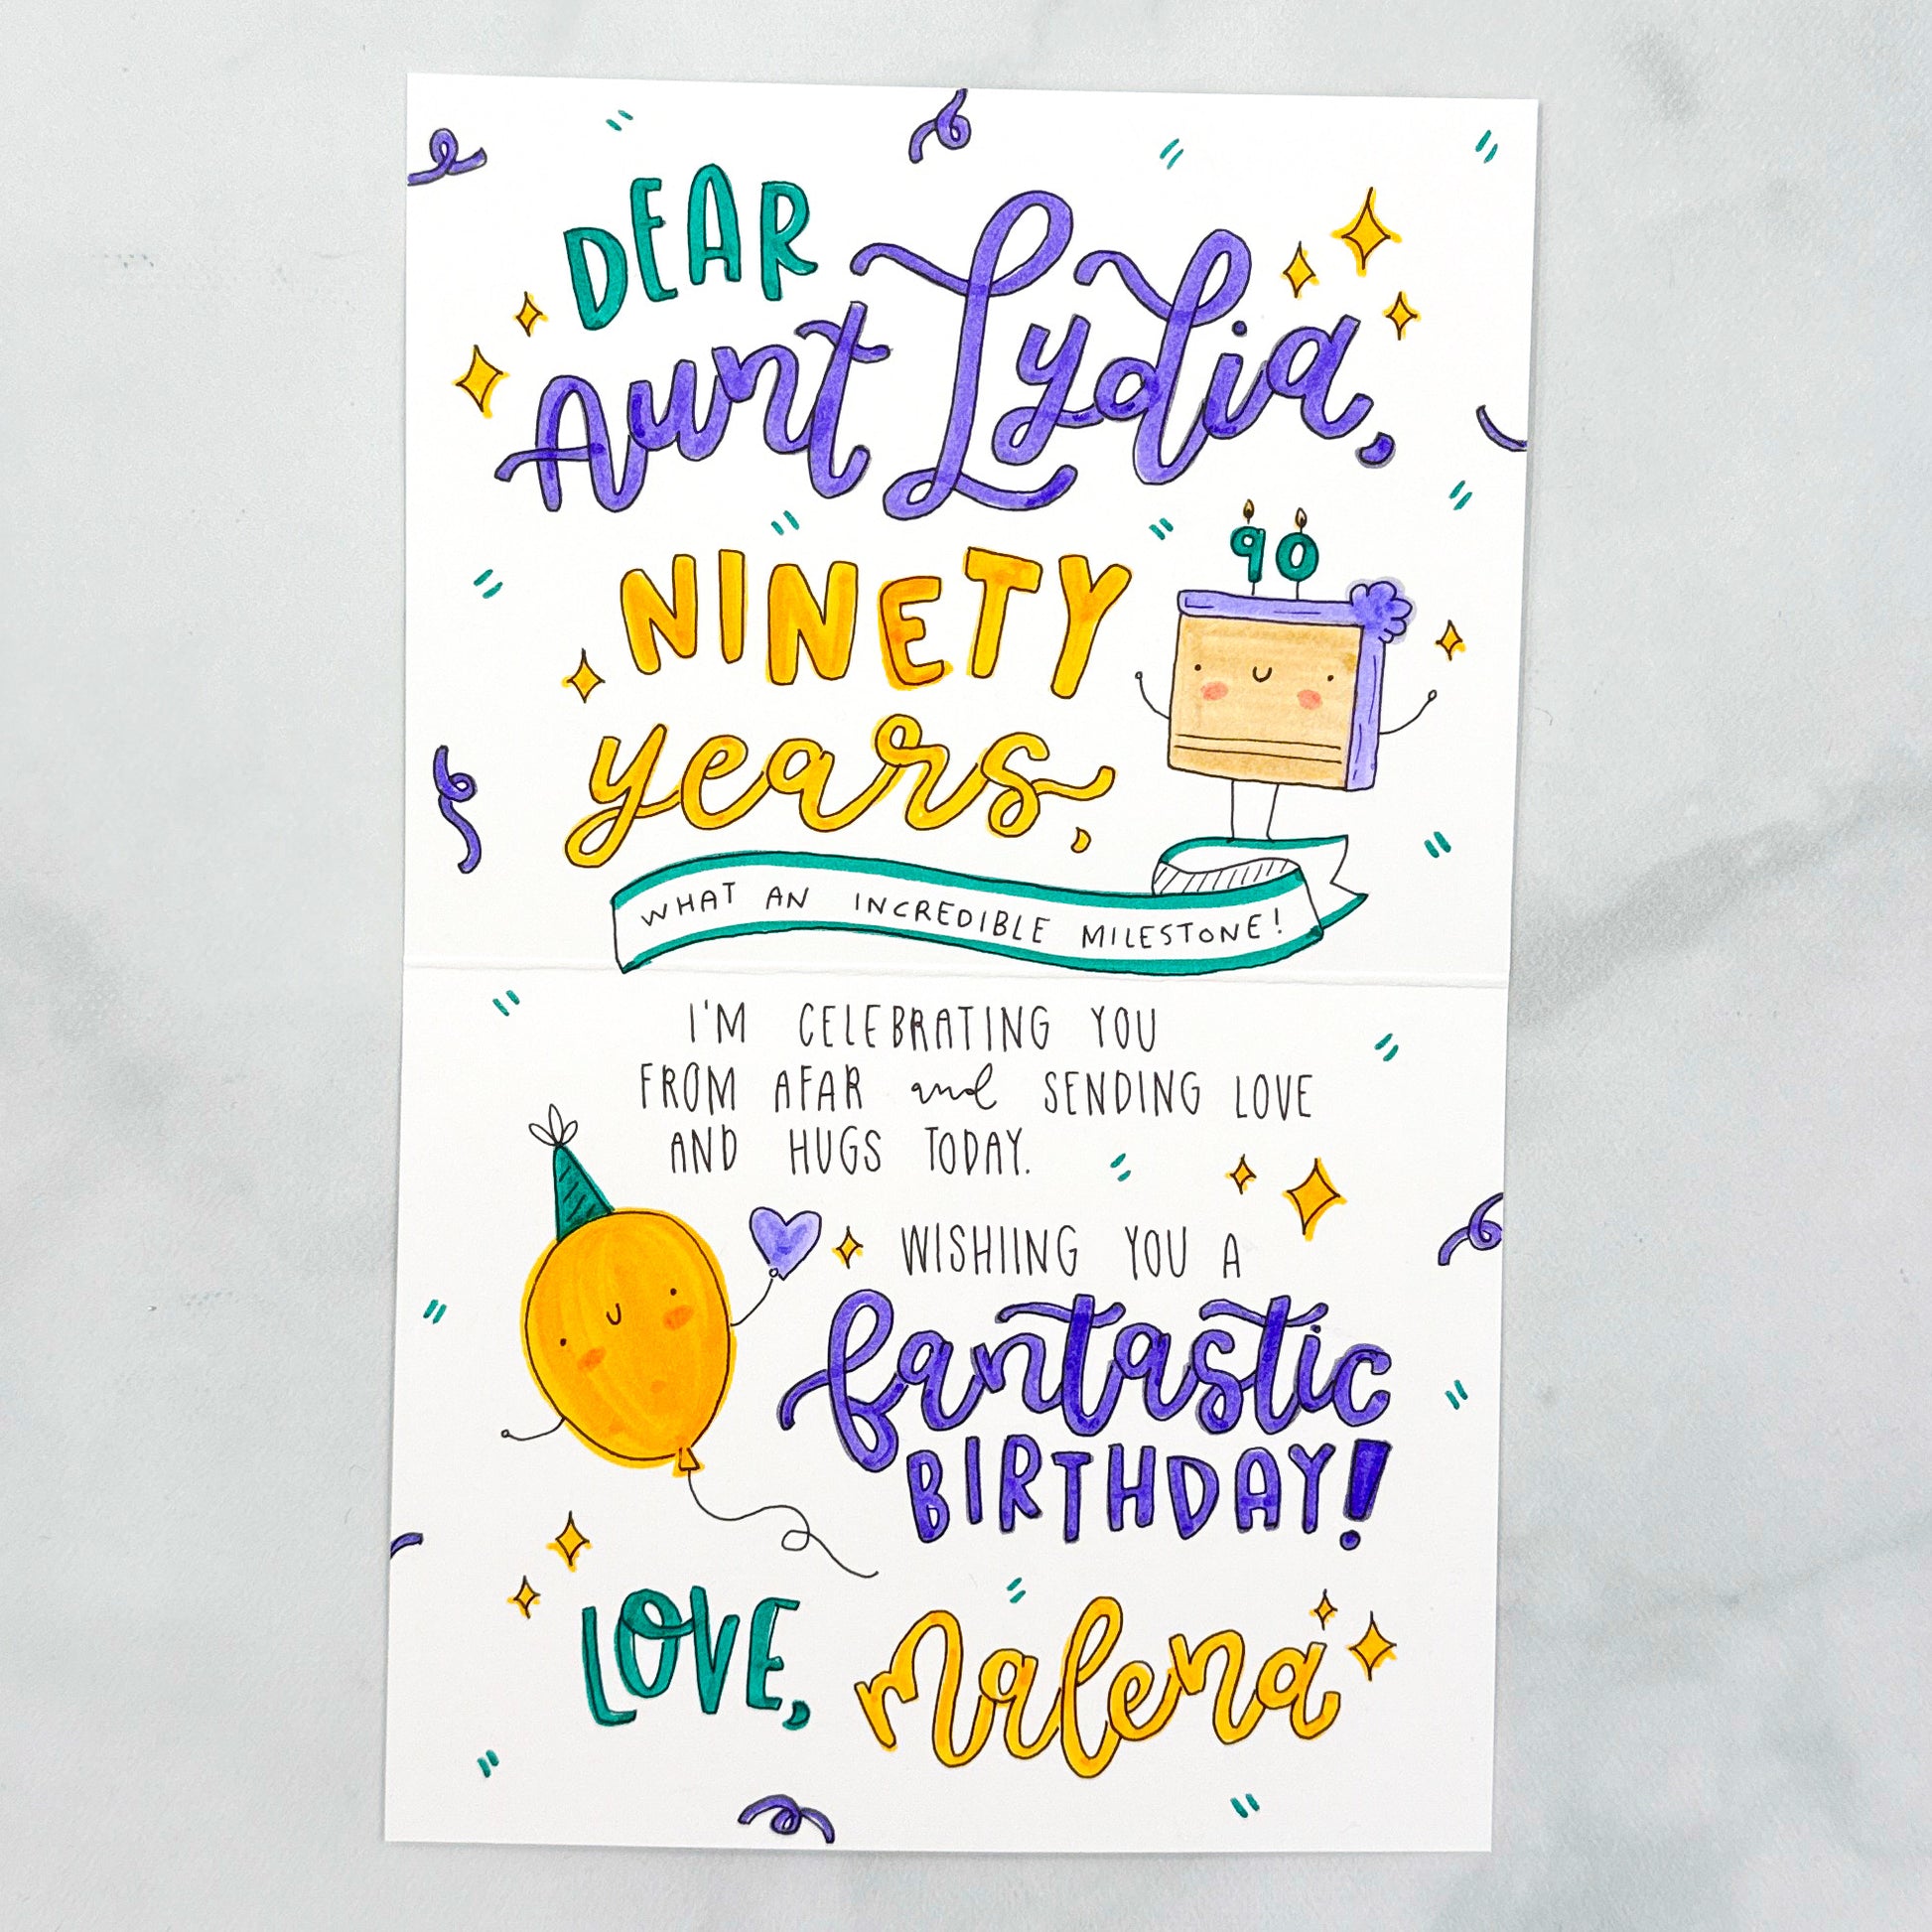 DEAR
Aunt Lydia,
NINETY
90
years,
WHAT AN INCREDIBLE MILESTONE!
I'M CELEBRATING YOU
FROM AFAR and SENDING LOVE
AND HUGS TODAY.
WISHIING YOU A
fantastic
BIRTHDAY!
LOVE, Malena